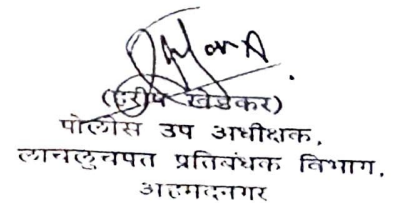 (हरीष खेडेकर)
पोलीस उप अधीक्षक,
लाचलुचपत प्रतिबंधक विभाग,
अहमदनगर